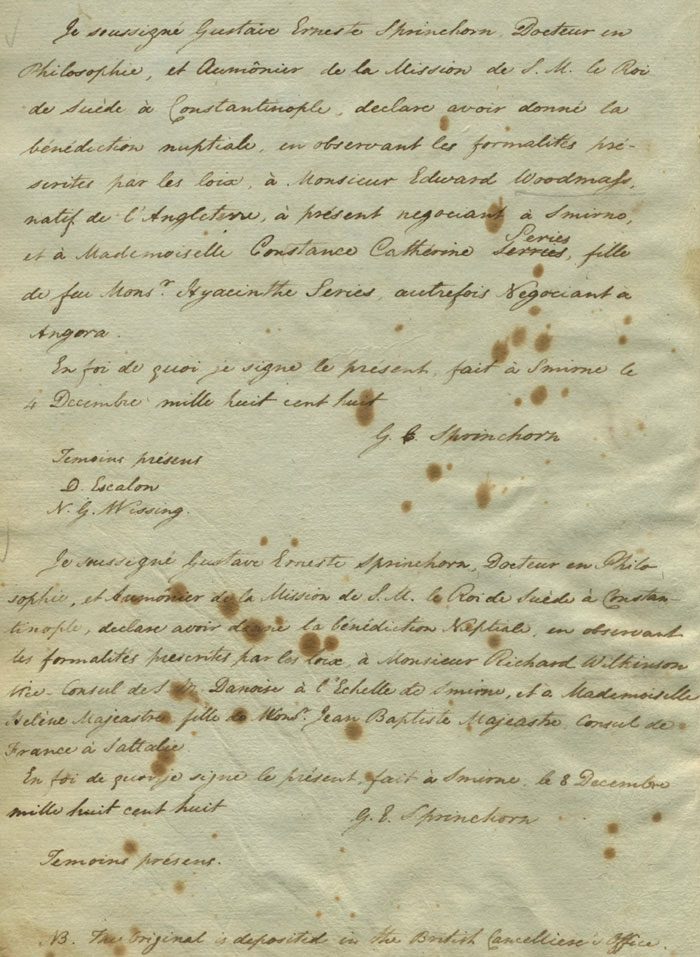 Je soussigné Gustave Erneste Sprinchorn, Docteur en
Philosophie, et Aumônier de la Mission de S. M. le Roi
de Suède à Constantinople, declare avoir donné la
bénédiction nuptiale, en observant les formalités pré-
scrites par les loix, à Monsieur Edward Woodmass,
natif de l'Angleterre, à présent negociant à Smirne,
Series
et à Mademoiselle Constance Catherine Serries, fille
de feu Monsr. Hyacinthe Series, autrefois Négociant a
Angora.
En foi de quoi je signe le présent, fait à Smirne le
4 Decembre mille huit cent huit
G. E. Sprinchorn
Temoins présens
D. Escalon
N. G. Wissing.
Je soussigné Gustave Erneste Sprinchorn, Docteur en Philo-
sophie, et Aumônier de la Mission de S. M. le Roi de Suède à Constan-
tinople, declare avoir donné la bénédiction Nuptiale, en observant
les formalités prescrites par les loix, à Monsieur Richard Wilkinson
Vice-Consul de S. M. Danoise à l'Echelle de Smirne, et à Mademoiselle
Helène Majeastre fille de Monsr. Jean Baptiste Majeastre Consul de
France à Sattalie
En foi de quoi je signe le présent, fait à Smirne, le 8 Decembre
mille huit cent huit
G. E. Sprinchorn
Temoins présens.
NB. The Original is deposited in the British Office.